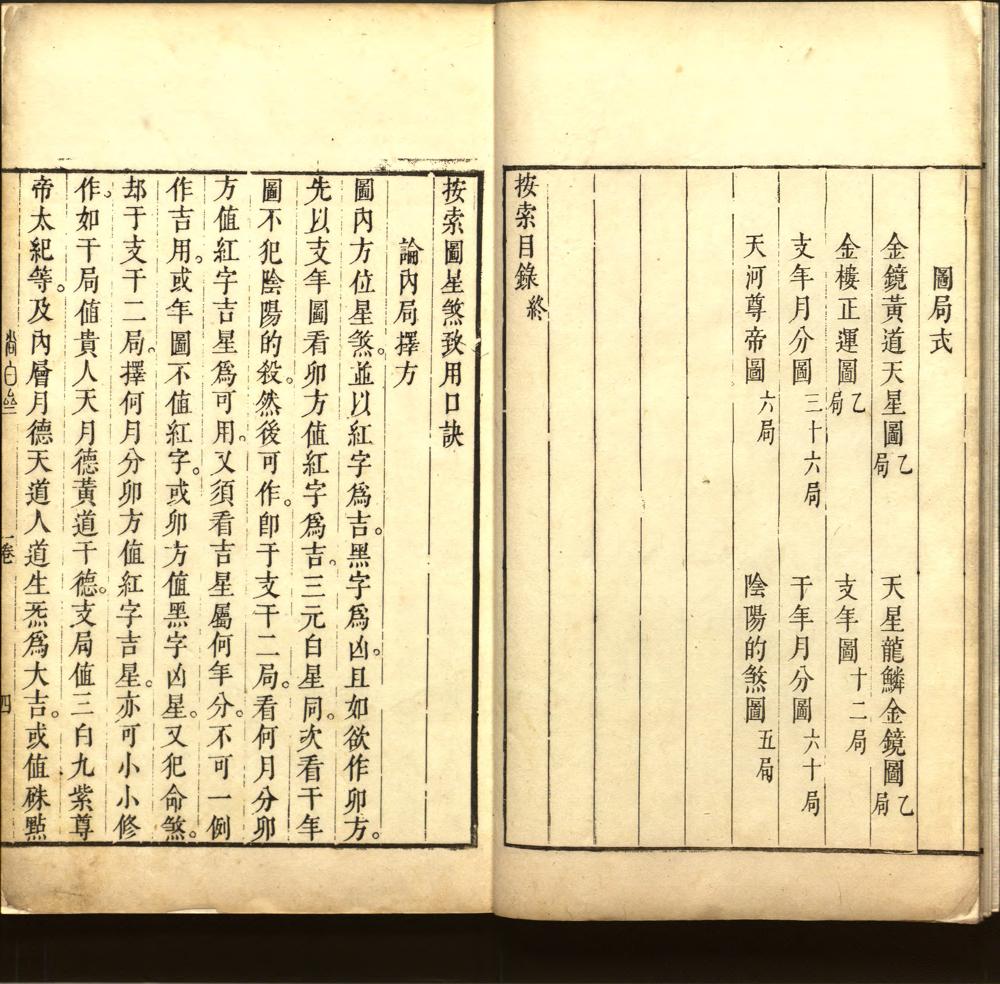 圖局式
金鏡黃道天星圖乙局　天星龍鱗金鏡圖乙局
金樓正運圖乙局　支年圖十二局
支年月分圖三十六局　干年月分圖六十局
天河尊帝圖六局　陰陽的煞圖五局
按索目錄終
按索圖星煞致用口訣
論內局擇方
圖內方位星煞。並以紅字爲吉。黑字爲凶。且如欲作卯方。
先以支年圖看卯方值紅字爲吉。三元白星同。次看干年
圖不犯陰陽的殺。然後可作。卽于支干二局。看何月分卯
方值紅字吉星爲可用。又須看吉星屬何年分。不可一例
作吉用。或年圖不值紅字。或卯方值黑字凶星。又犯命煞。
却于支干二局。擇何月分卯方值紅字吉星。亦可小小修
作。如干局值貴人天月德黃道干德。支局值三白九紫尊
帝太紀等。及內層月德天道人道生炁爲大吉。或值硃㸃
尙白叄
一卷
四